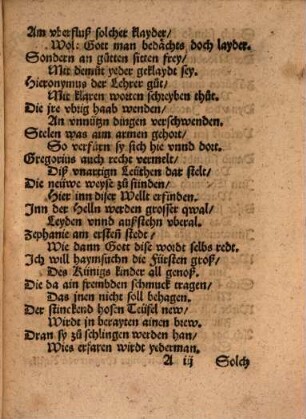 Am vberfluß solcher klayder/
Wol: Gott man bedåchts doch layder.
Sondern an gůtten sitten frey/
Mit demůt yeder geklaydt sey.
Hieronymus der Lehrer gůt/
Mit klaren worten schreyben thůt.
Die jre vbrig haab wenden/
An vnnütz dingen verschwenden.
Stelen was aim armen gehört/
So verfårn sy sich hie vnnd dort.
Gregorius auch recht vermelt/
Diß vnartign Leüthen dar stelt/
Die neüwe weyse zů sünden/
Hier inn diser Wellt erfinden.
Inn der Helln werden grosser qwal/
Leyden vnnd außstehn vberal.
Zephanie am ersten stedt/
Wie dann Gott dise wordt selbs redt.
Ich will haymsuchn die Fürsten groß/
Des Künigs kinder all genoß.
Die da ain frembden schmuck tragen/
Das jnen nicht soll behagen.
Der stinckend hosen Teüfel new/
Wirdt jn berayten ainen brew.
Dran sy zů schlingen werden han/
Wies erfaren wirdt yederman.
A iij Solch